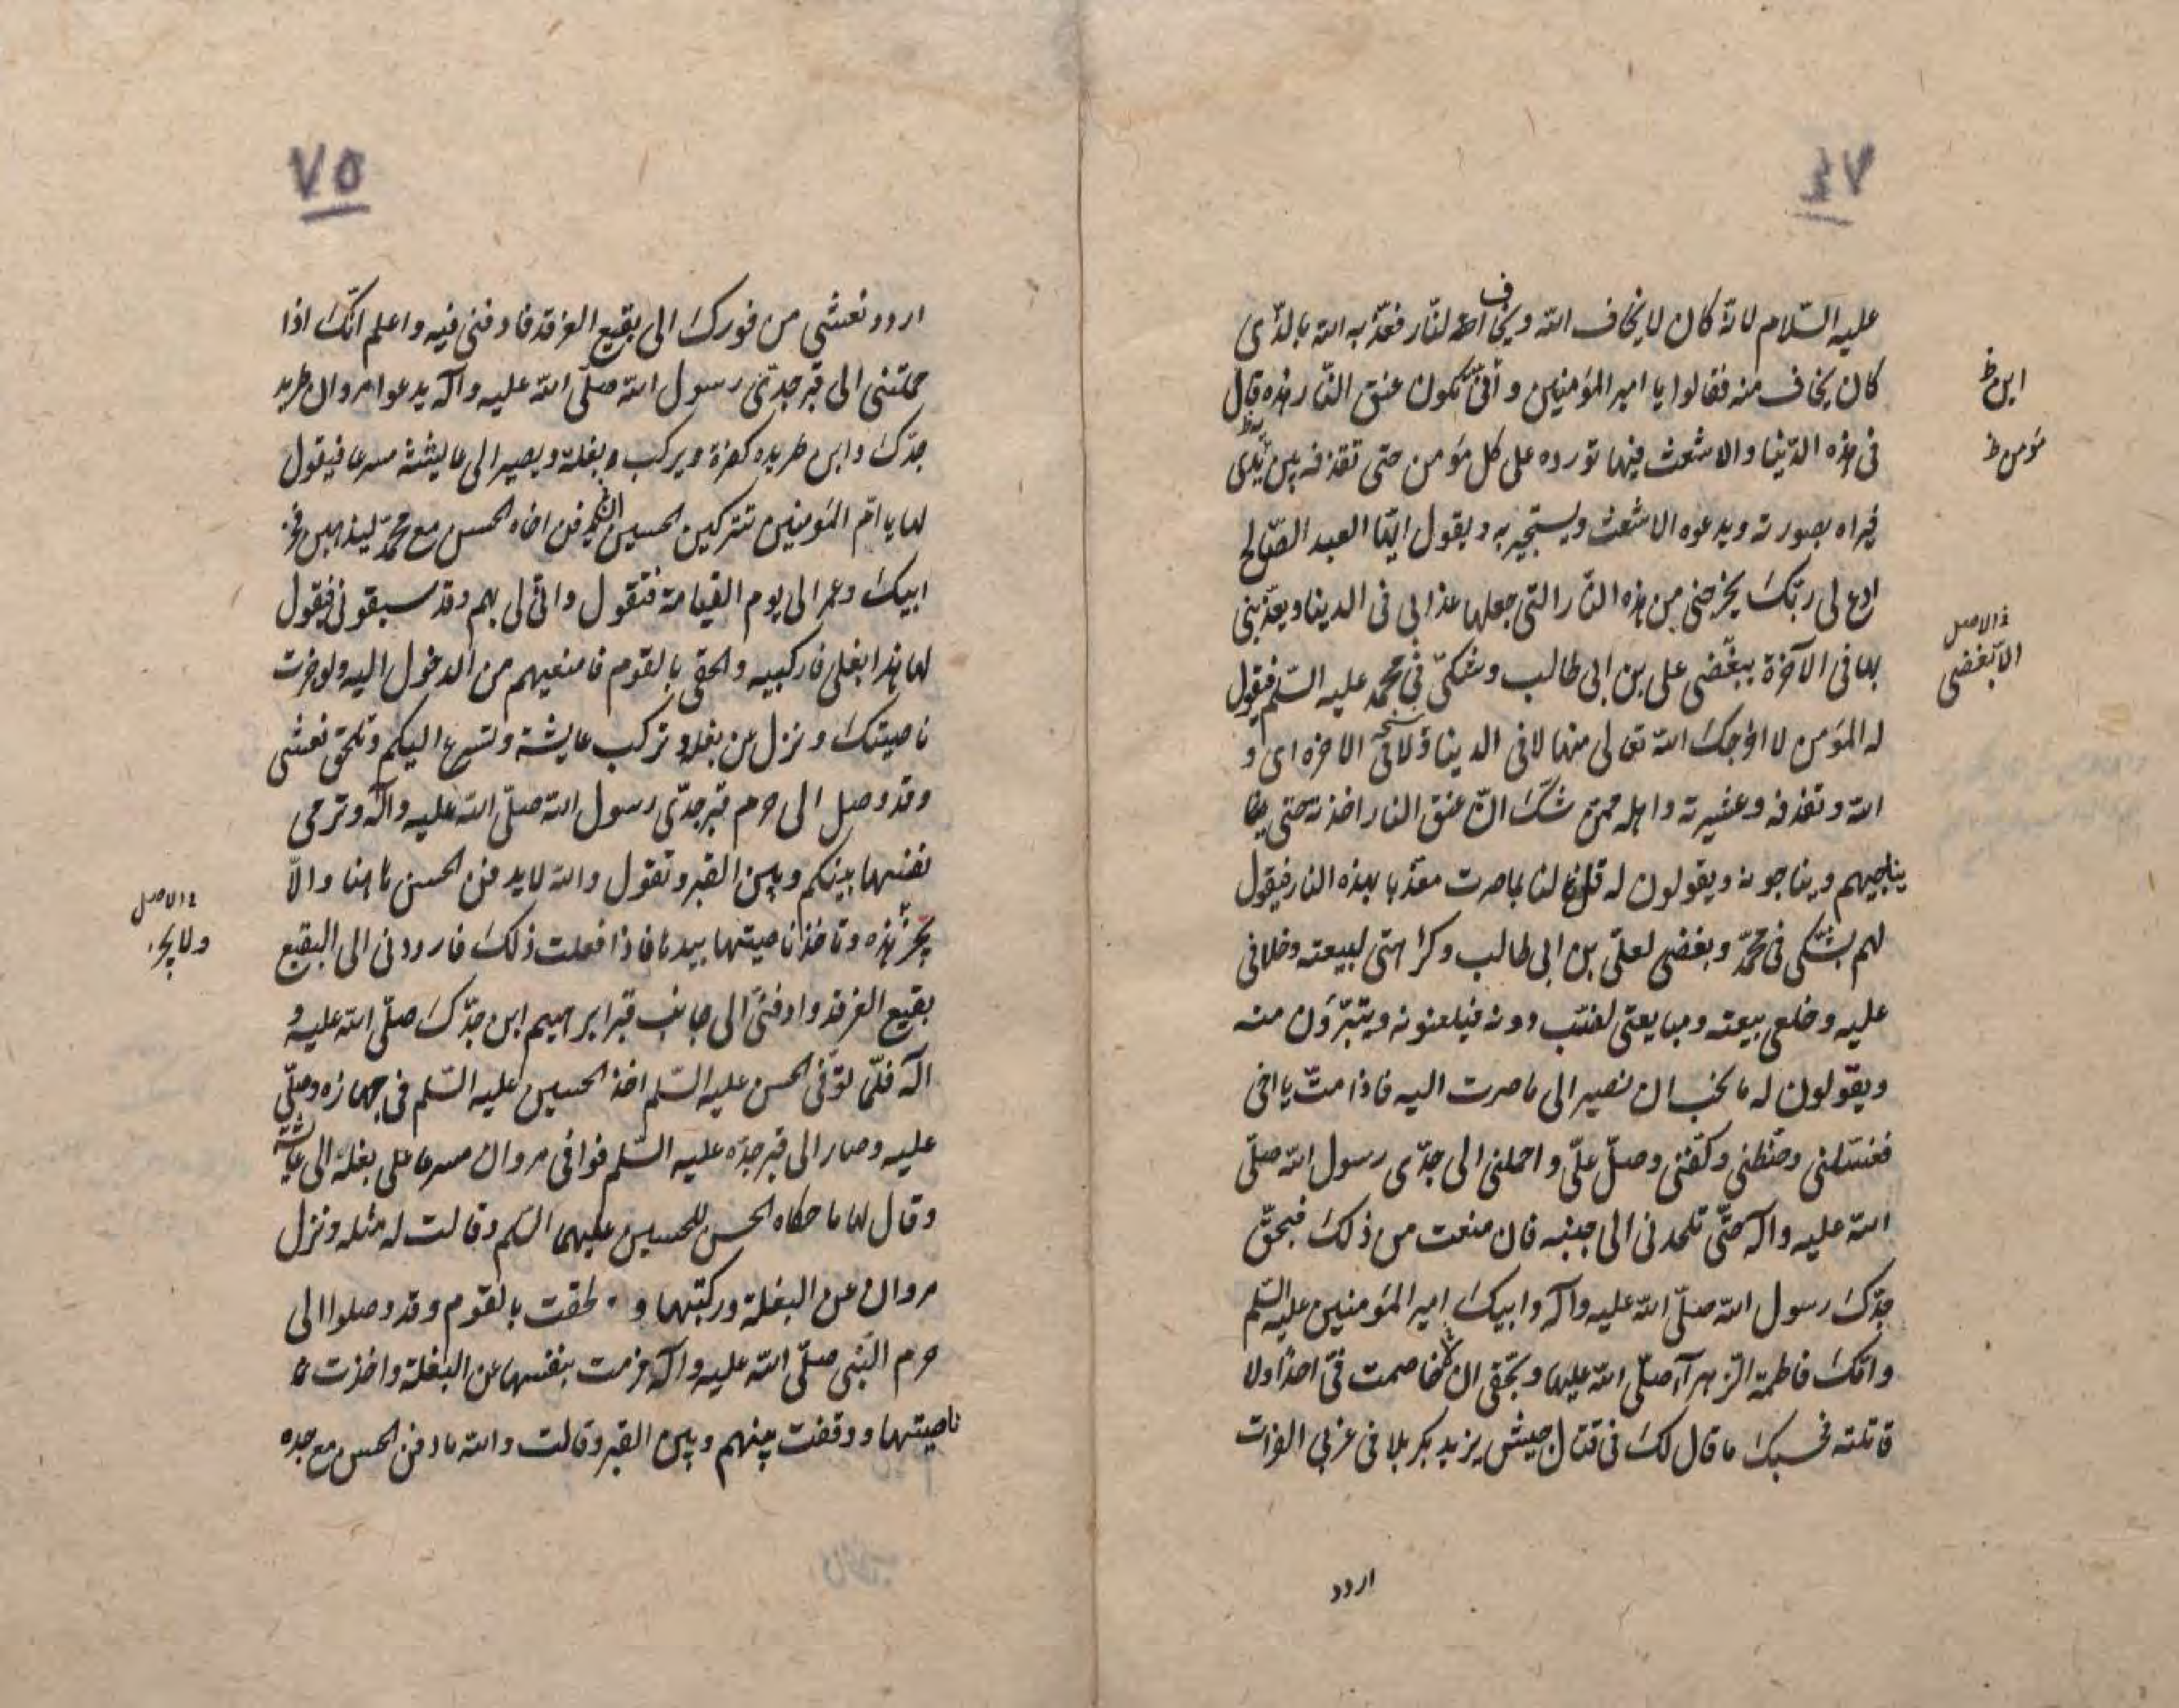 ٧٤
عليه السّلام لانّه كان لا يخاف الله ويخاف النار فعذّبه الله بالذي
كان يخاف منه فقالوا يا امير المؤمنين وأنّى يكون عنق النّار هذه قال
في هذه الدّنيا والاشعث فيها تورده على كل مؤمن حتى تقذفه بين يدي
فيراه بصورته ويدعوه الاشعث ويستجير به ويقول ايّها العبد الصّالح
ادع لي ربّك يخرجني من هذه النّار التي جعلها عذابي في الدينا ويعذّبني
بها في الآخرة ببغضي علي بن ابي طالب وشكّي في محمد عليه السّلم فيقول
له المؤمن لا اخرجك الله تعالى منها لا في الدينا ولا في الاخرة اى و
الله وتقذفه وعشيرته واهله ممن شكّ انّ عنق النار اخذته حتى
يناجيهم ويناجونه ويقولون له قل لنا بما صرت معذّبا بهذه النار فيقول
لهم بشكّي في محمّد وبغضي لعليّ بن ابي طالب وكراهتي لبيعته وخلافي
عليه وخلعي بيعته ومبايعتي لضبّ دونه فيلعنونه ويتبرّؤن منه
ويقولون له ما نحب ان نصير الى ما صرت اليه فاذا متّ يا اخي
فغسّلني وحنّطني وكفّنّي وصلّ عليّ واحملني الى جدّي رسول الله صلّى
الله عليه وآله حتّى تلحدني الى جنبه فان منعت من ذلك فبحقّ
جدّك رسول الله صلّى الله عليه وآله وابيك امير المؤمنين عليه السّلم
وامّك فاطمة الزّهرآء صلّى الله عليها وبحقّي ان خاصمت فيّ احدا ولا
قاتلته فحسبك ما قال لك في قتال جيش يزيد بكربلا في غربي الفرات
اردد
ابن ظ
مؤمن ظ
في الاصل
الا بغضي
٧٥
اردد نعشي من فورك الى بقيع الغرقد فادفنّي فيه واعلم انّك اذا
حملتني الى قبر جدّي رسول الله صلّى الله عليه وآله يدعو مروان طريد
جدّك وابن طريده كفرة ويركب بغلة ويصير الى عايشة مسرعا فيقول
لها يا امّ المؤمنين تتركين الحسين يدفن اخاه الحسن مع محمّد ليذهبن فخر
ابيك وعمر الى يوم القيامة فتقول وانّى لي بهم وقد سبقوني فيقول
لها هذا بغلي فاركبيه والحقي بالقوم فامنعيهم من الدخول اليه ولو خرت
ناصيتك ونزل عن بغله وتركب عايشة وتسرع اليكم وتلحق نعشي
وقد وصل الى حرم قبر جدّي رسول الله صلّى الله عليه وآله وترمي
نفسها بينكم وبين القبر وتقول والله لا يدفن الحسن هاهنا والّا
يجز هذه وتاخذ ناصيتها بيدها فاذا فعلت ذلك فارددني الى البقيع
بقيع الغرقد وادفنّي الى جانب قبر ابرهيم ابن جدّك صلّى الله عليه و
آله فلمّا توفّي الحسن عليه السّلم اخذ الحسين عليه السّلم في جهازه وصلّى
عليه وصار الى قبر جدّه عليه السّلم فوافى مروان مسرعا على بغلة الى عايشة
وقال لها ما حكاه الحسن للحسين عليهما السّلم وقالت له مثله ونزل
مروان عن البغلة وركبتها و لحقت بالقوم وقد وصلوا الى
حرم النّبي صلّى الله عليه وآله فرمت بنفسها عن البغلة واخذت
ناصيتها ووقفت بينهم وبين القبر وقالت والله ما دفن الحسن مع جده
في الاصل
ولا يجز